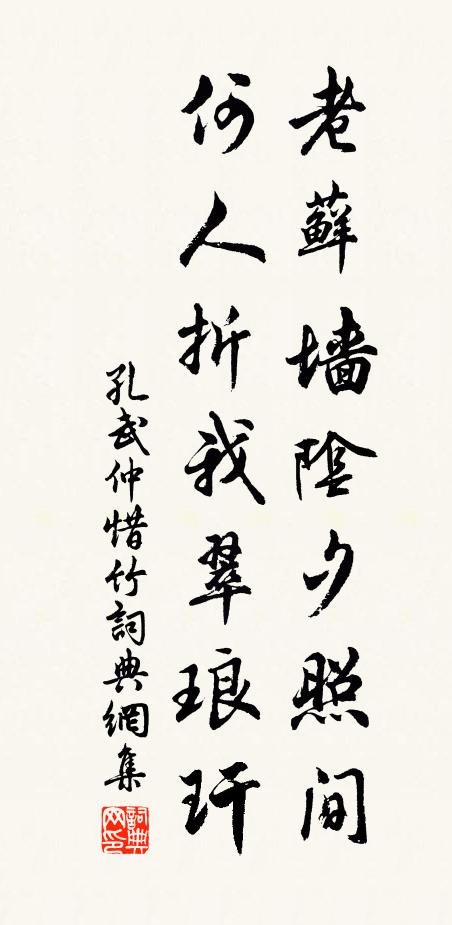 老蘚墙陰夕照間
何人折我翠琅玕
孔武仲惜竹詞典網集
詞典网印